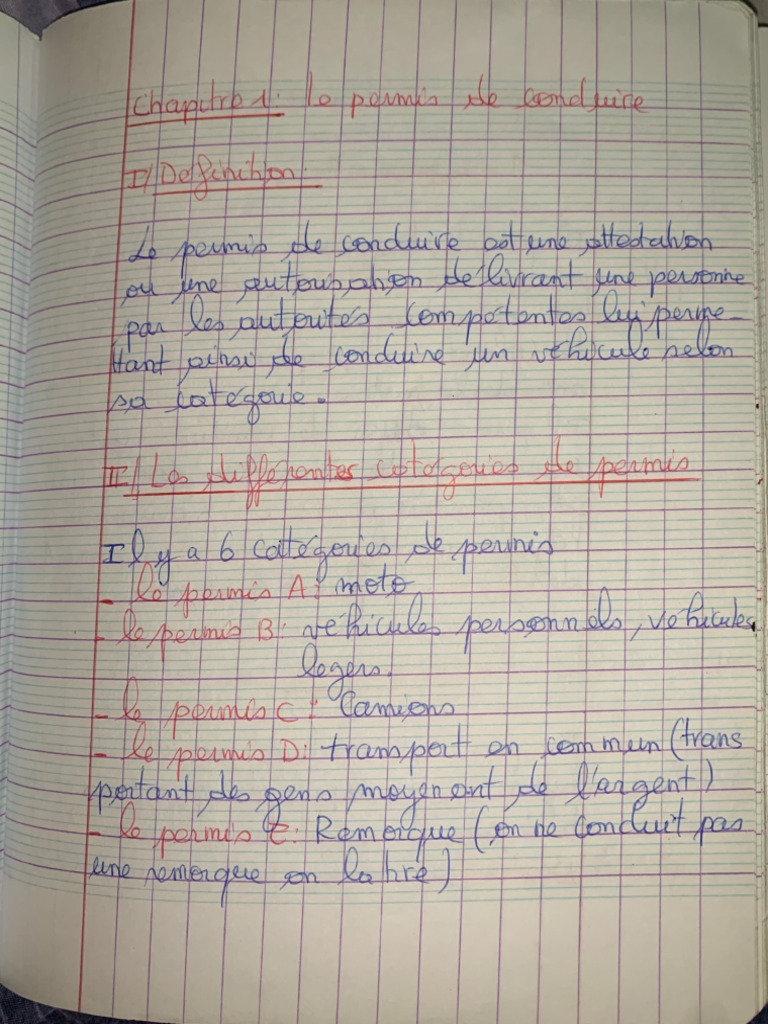 Chapitre 1: le permis de conduire
I/ Definition.
Le permis de conduire est une attestation
ou une autorisation délivrant une personne
par les autorités compétentes lui perme-
ttant ainsi de conduire un véhicule selon
sa catégorie.
II/ Les différentes catégories de permis
Il y a 6 catégories de permis
- le permis A: moto
- le permis B: véhicules personnels, véhicules
légers.
- le permis C: Camions
- le permis D: transport en commun (trans
portant des gens moyenant de l'argent)
- le permis E: Remorque (on ne conduit pas
une remorque en